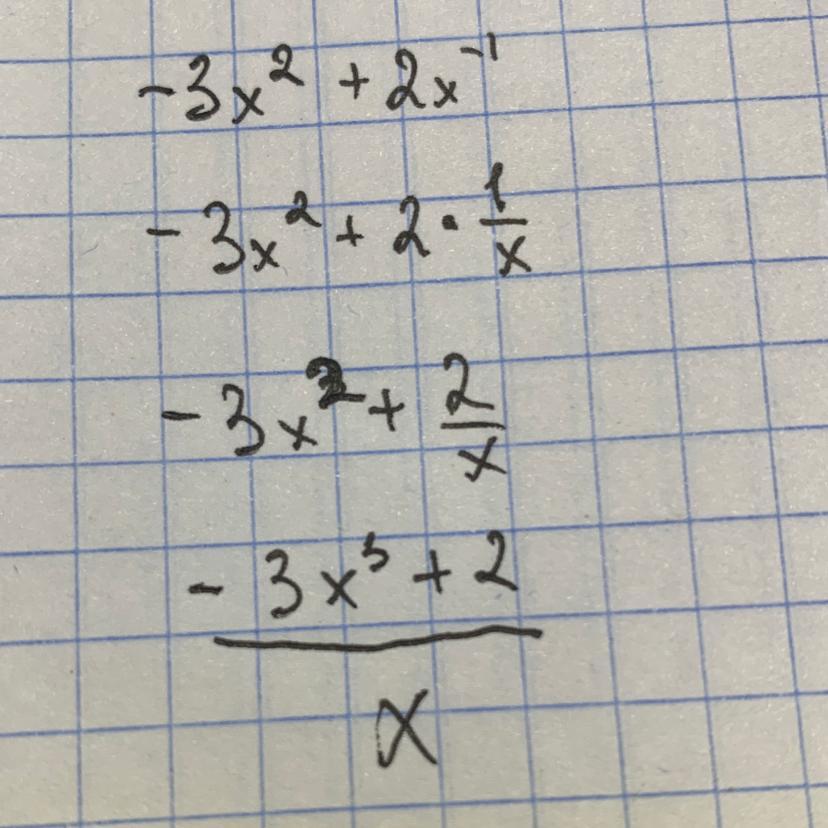 -3x² + 2x⁻¹
-3x² + 2 · 1/x
-3x² + 2/x
-3x³ + 2
x